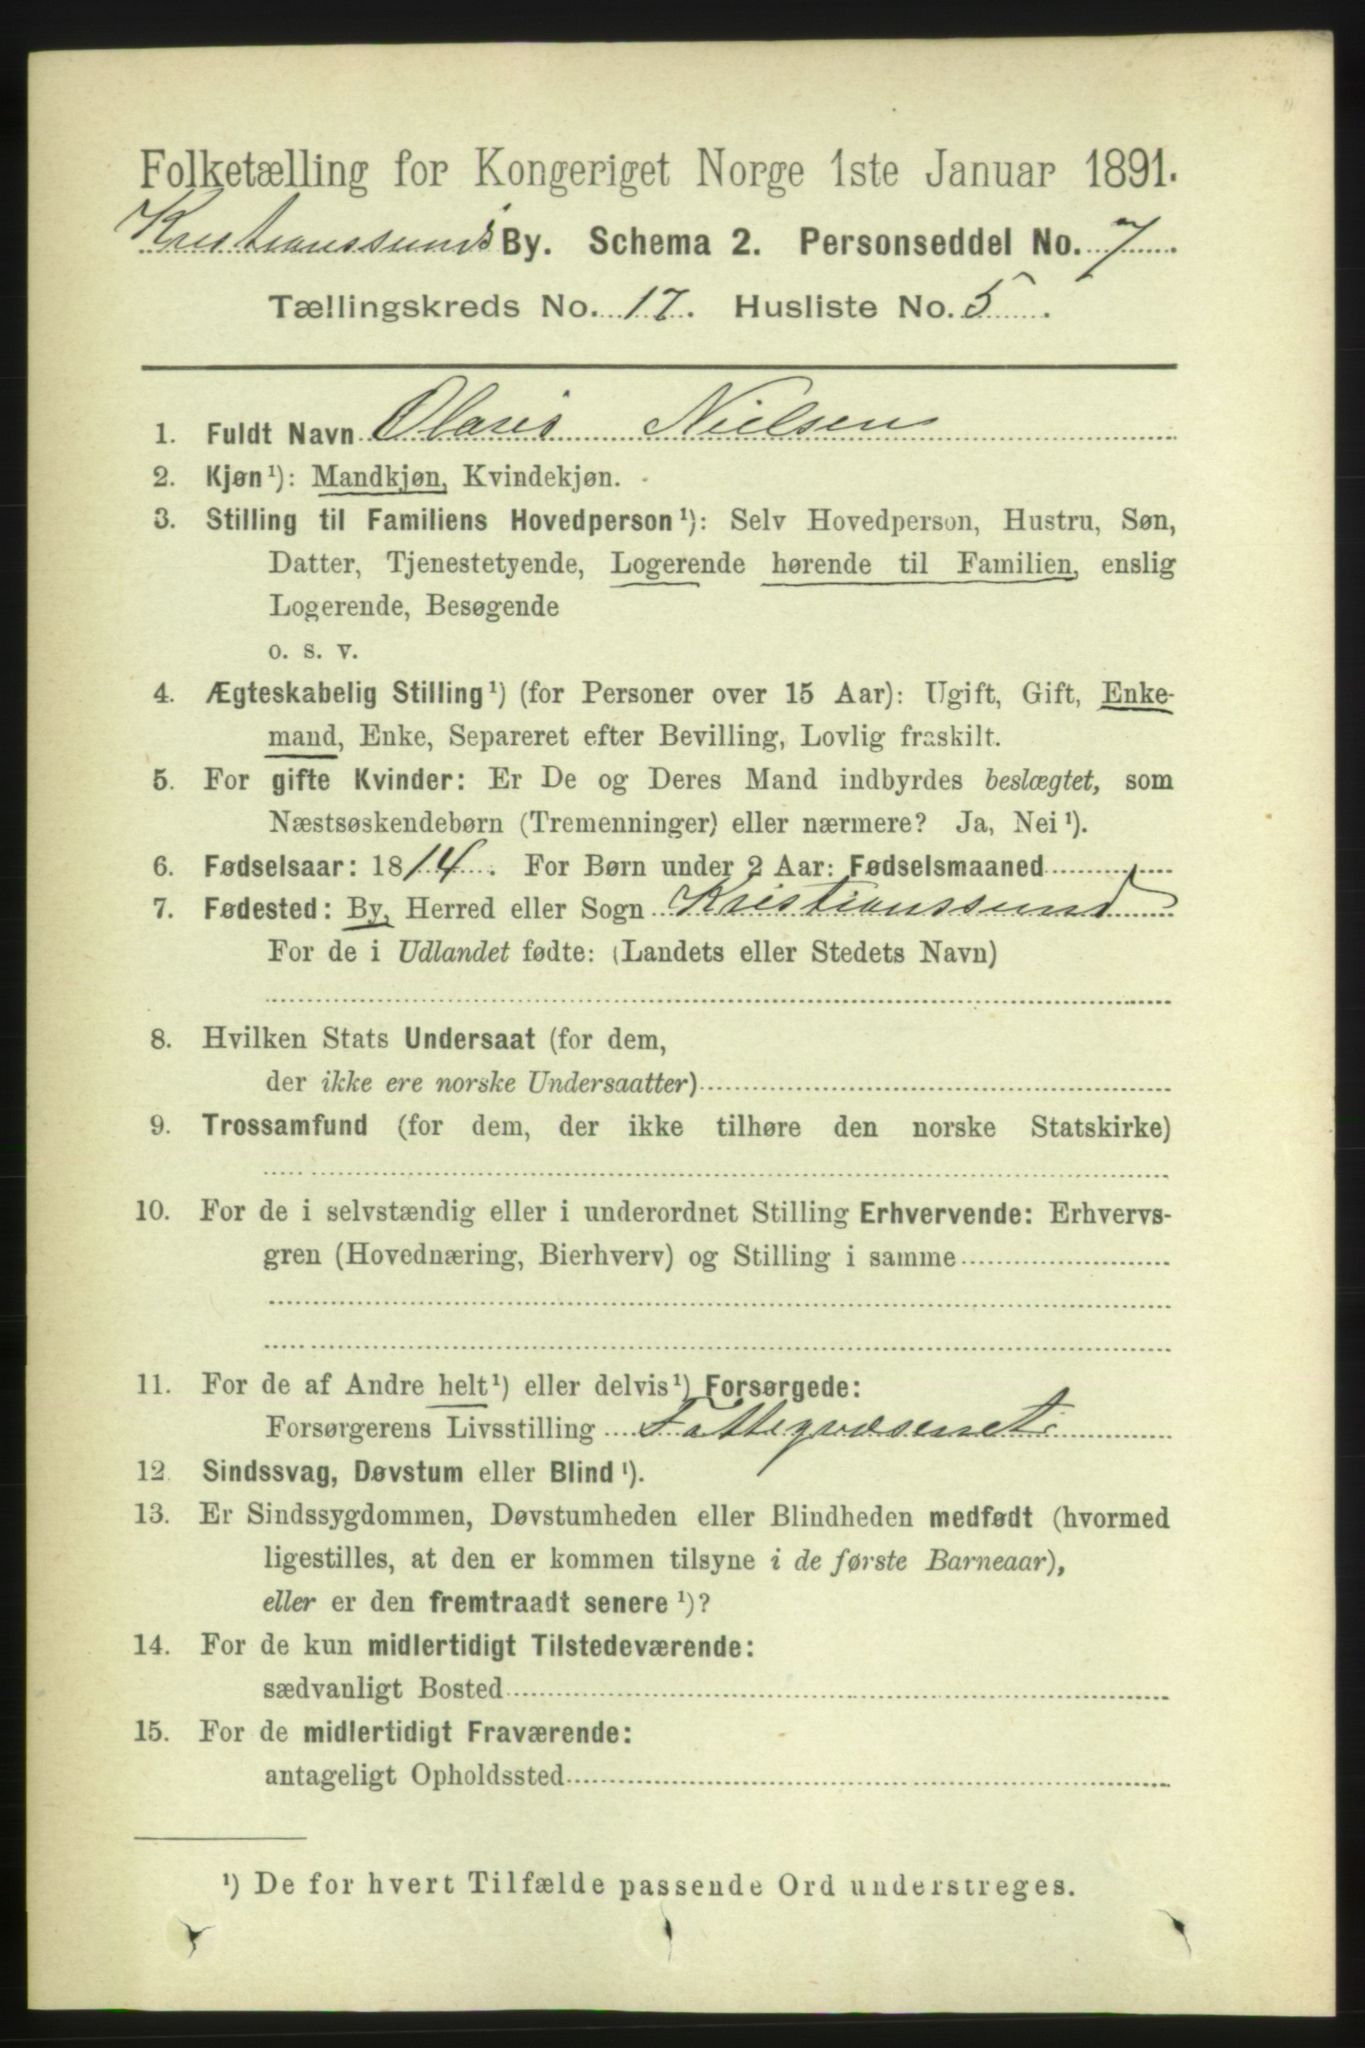 Folketælling for Kongeriget Norge 1ste Januar 1891.
Kristianssunds By. Schema 2. Personseddel No. 7
Tællingskreds No. 17. Husliste No. 5.
1. Fuldt Navn Olaus Nielsen
2. Kjøn¹): Mandkjøn, Kvindekjøn.
3. Stilling til Familiens Hovedperson¹): Selv Hovedperson, Hustru, Søn,
Datter, Tjenestetyende, Logerende hørende til Familien, enslig
Logerende, Besøgende
o. s. v.
4. Ægteskabelig Stilling¹) (for Personer over 15 Aar): Ugift, Gift, Enke-
mand, Enke, Separeret efter Bevilling, Lovlig fraskilt.
5. For gifte Kvinder: Er De og Deres Mand indbyrdes beslægtet, som
Næstsøskendebørn (Tremenninger) eller nærmere? Ja, Nei¹).
6. Fødselsaar: 1814. For Børn under 2 Aar: Fødselsmaaned
7. Fødested: By, Herred eller Sogn Kristianssund
For de i Udlandet fødte: (Landets eller Stedets Navn)
8. Hvilken Stats Undersaat (for dem,
der ikke ere norske Undersaatter)
9. Trossamfund (for dem, der ikke tilhøre den norske Statskirke)
10. For de i selvstændig eller i underordnet Stilling Erhvervende: Erhvervs-
gren (Hovednæring, Bierhverv) og Stilling i samme
11. For de af Andre helt¹) eller delvis¹) Forsørgede:
Forsørgerens Livsstilling Fattigvæsenet.
12 Sindssvag, Døvstum eller Blind¹).
13. Er Sindssygdommen, Døvstumheden eller Blindheden medfødt (hvormed
ligestilles, at den er kommen tilsyne i de første Barneaar),
eller er den fremtraadt senere¹)?
14. For de kun midlertidigt Tilstedeværende:
sædvanligt Bosted
15. For de midlertidigt Fraværende:
antageligt Opholdssted
¹) De for hvert Tilfælde passende Ord understreges.